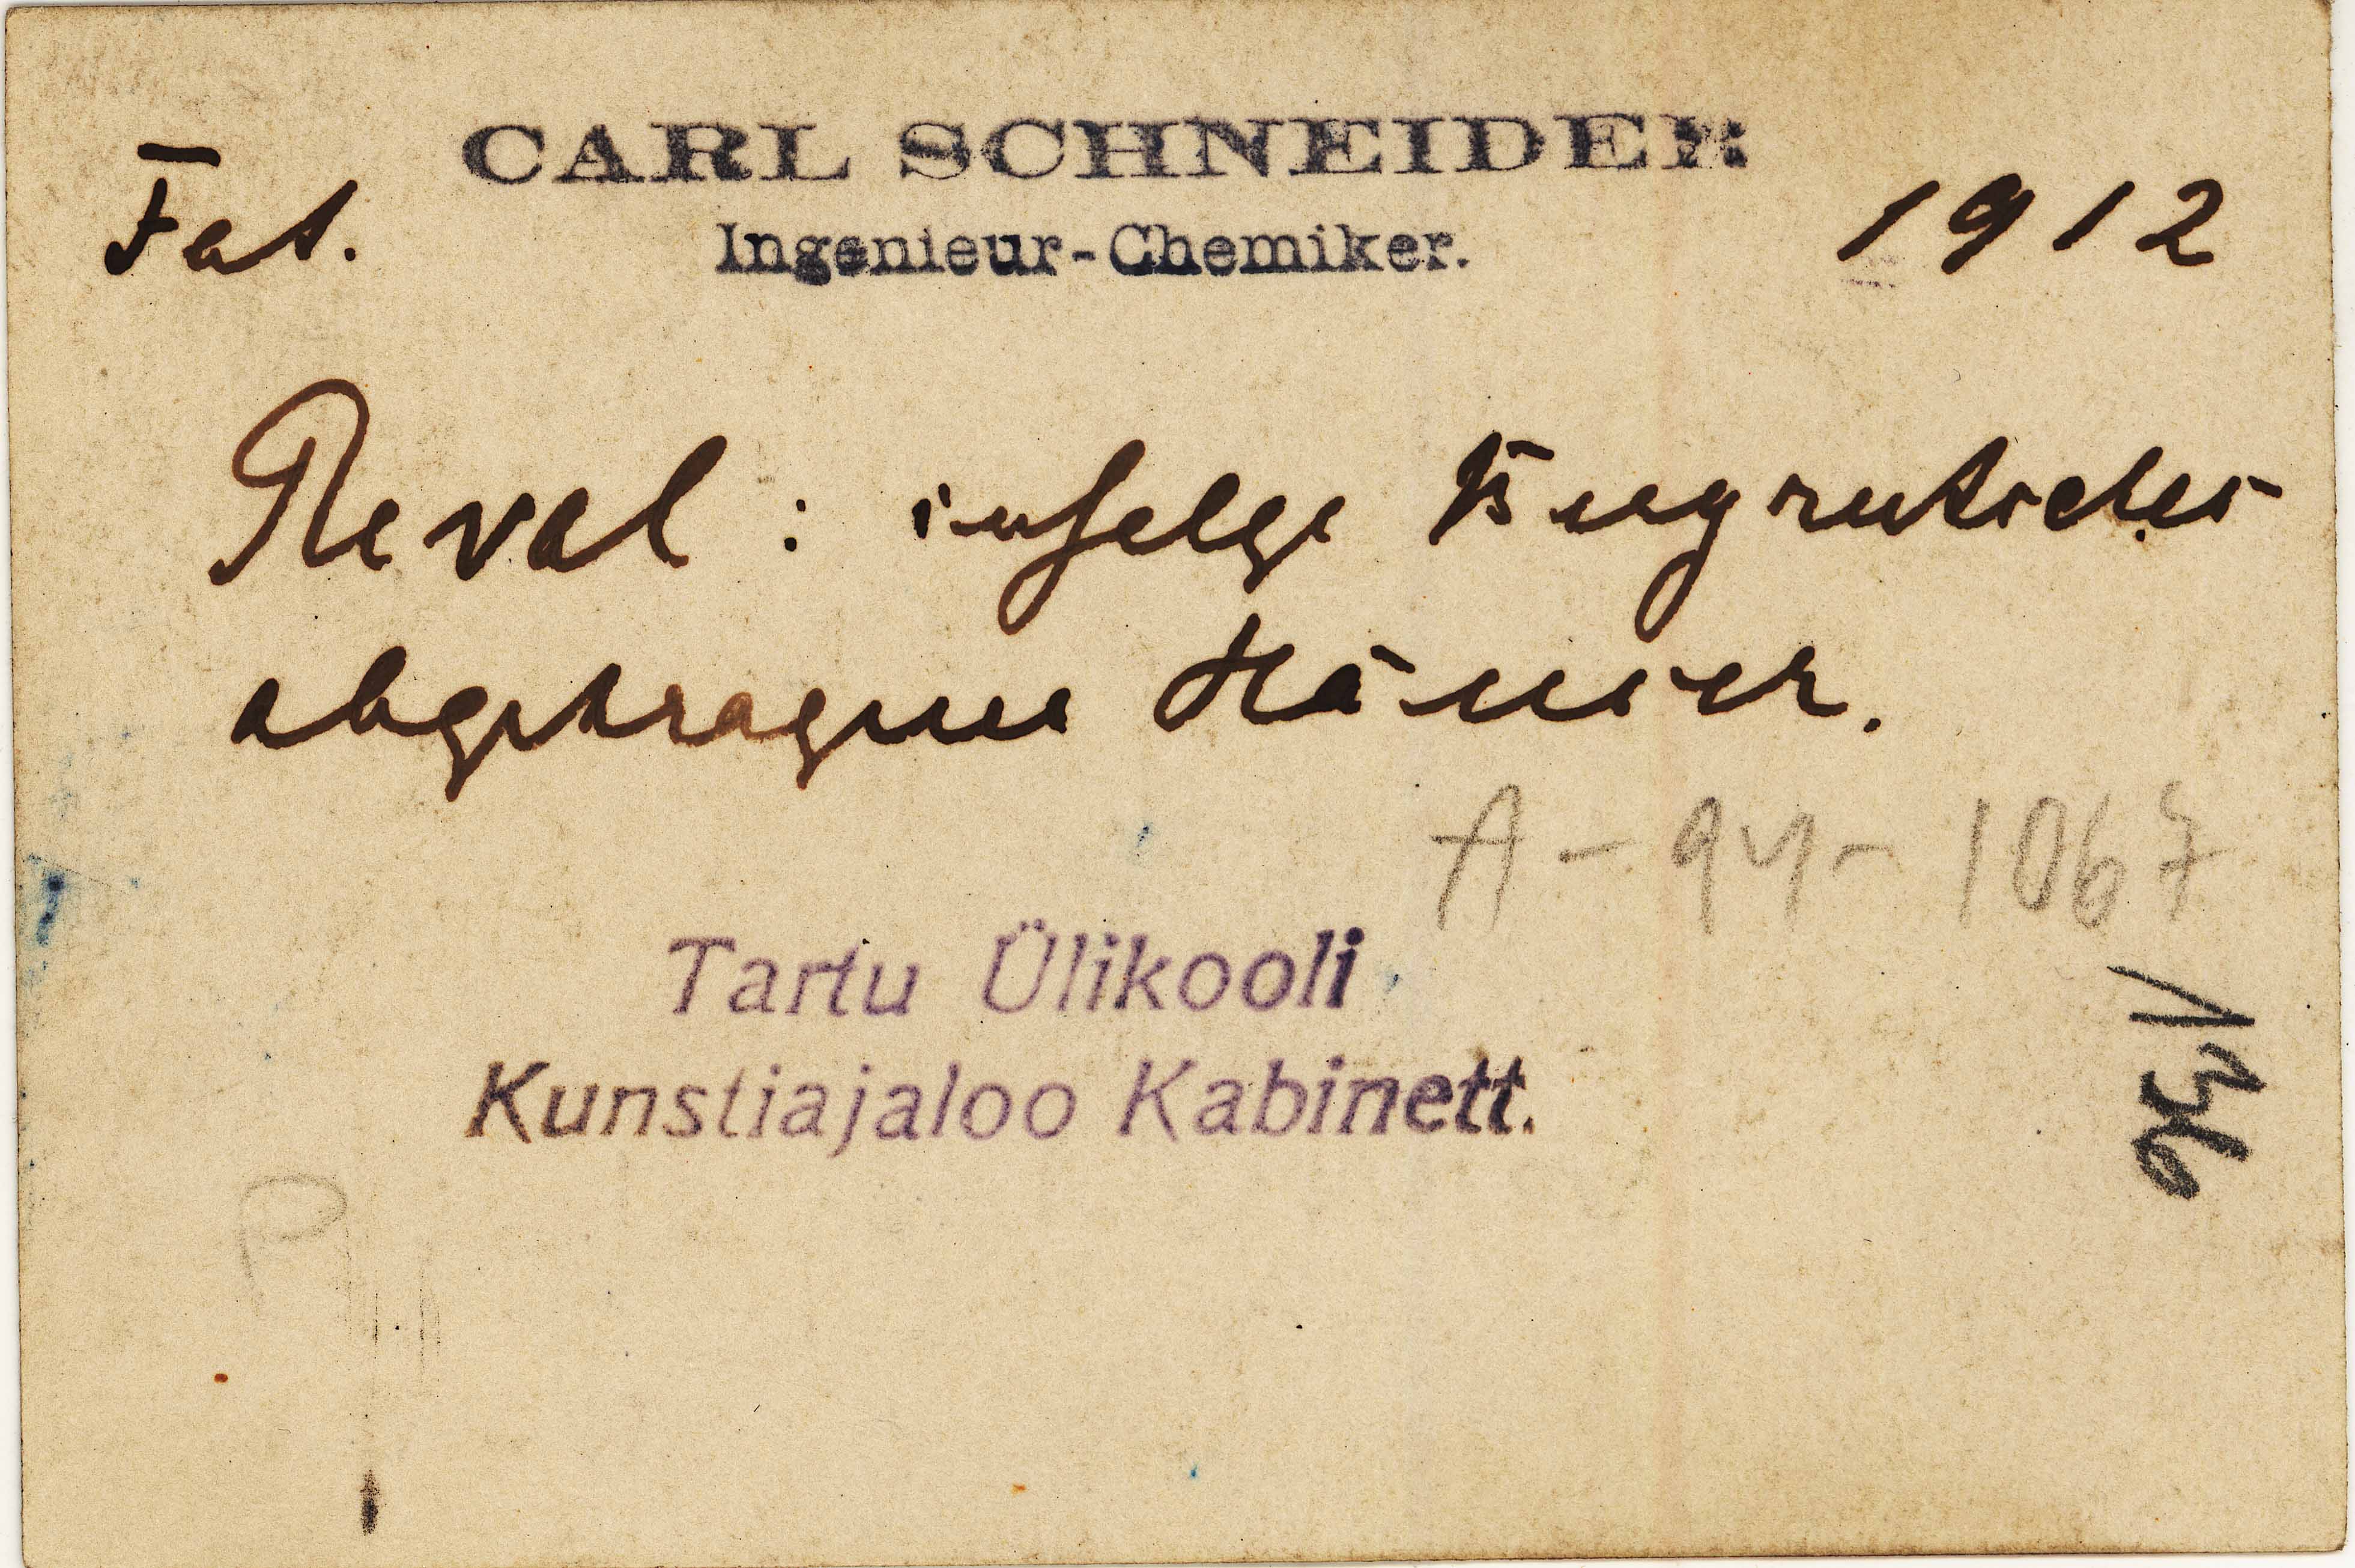 Fot. CARL SCHNEIDER 1912
Ingenieur-Chemiker.
Reval: infolge Bergrutsches
abgetragene Häuser.
A-94-1067
Tartu Ülikooli
Kunstiajaloo Kabinett.
136